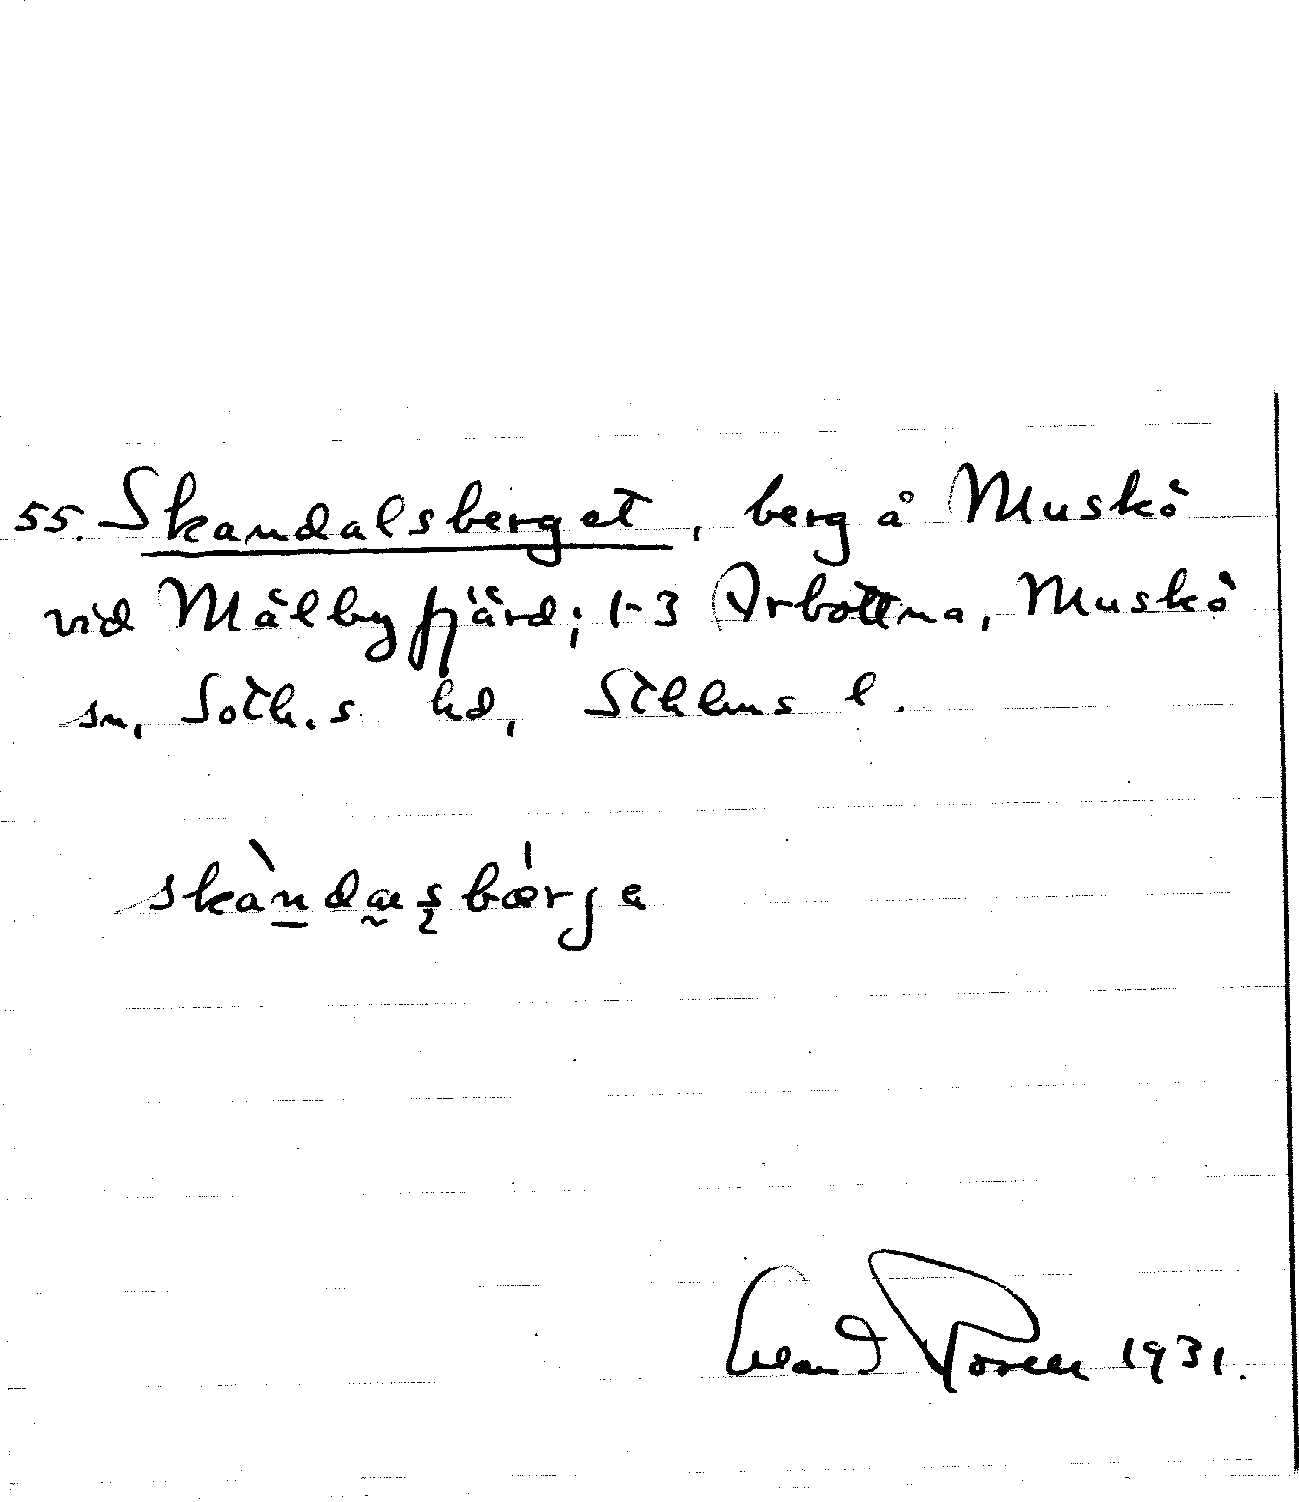 55. Skandalsberget, berg å Muskö
vid Mälbyfjärd; 1-3 Arbottna, Muskö
sn, Soth.s hd, Sthlms l.
skàndaꞈsbǽrje
1931.